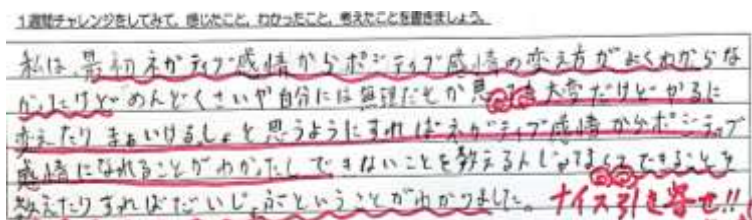 1週間チャレンジをしてみて、感じたこと、わかったこと、考えたことを書きましょう。
私は、最初ネガティブ感情からポジティブ感情の変え方がよくわからな
かったけどめんどくさいや自分には無理だとか思っても大変だけどやるに
変えたりまぁいけるっしょと思うようにすればネガティブ感情からポジティブ
感情になれることがわかったしできないことを数えるんじゃなくてできることを
数えたりすればだいじょぶということがわかりました。ナイス引き寄せ!!